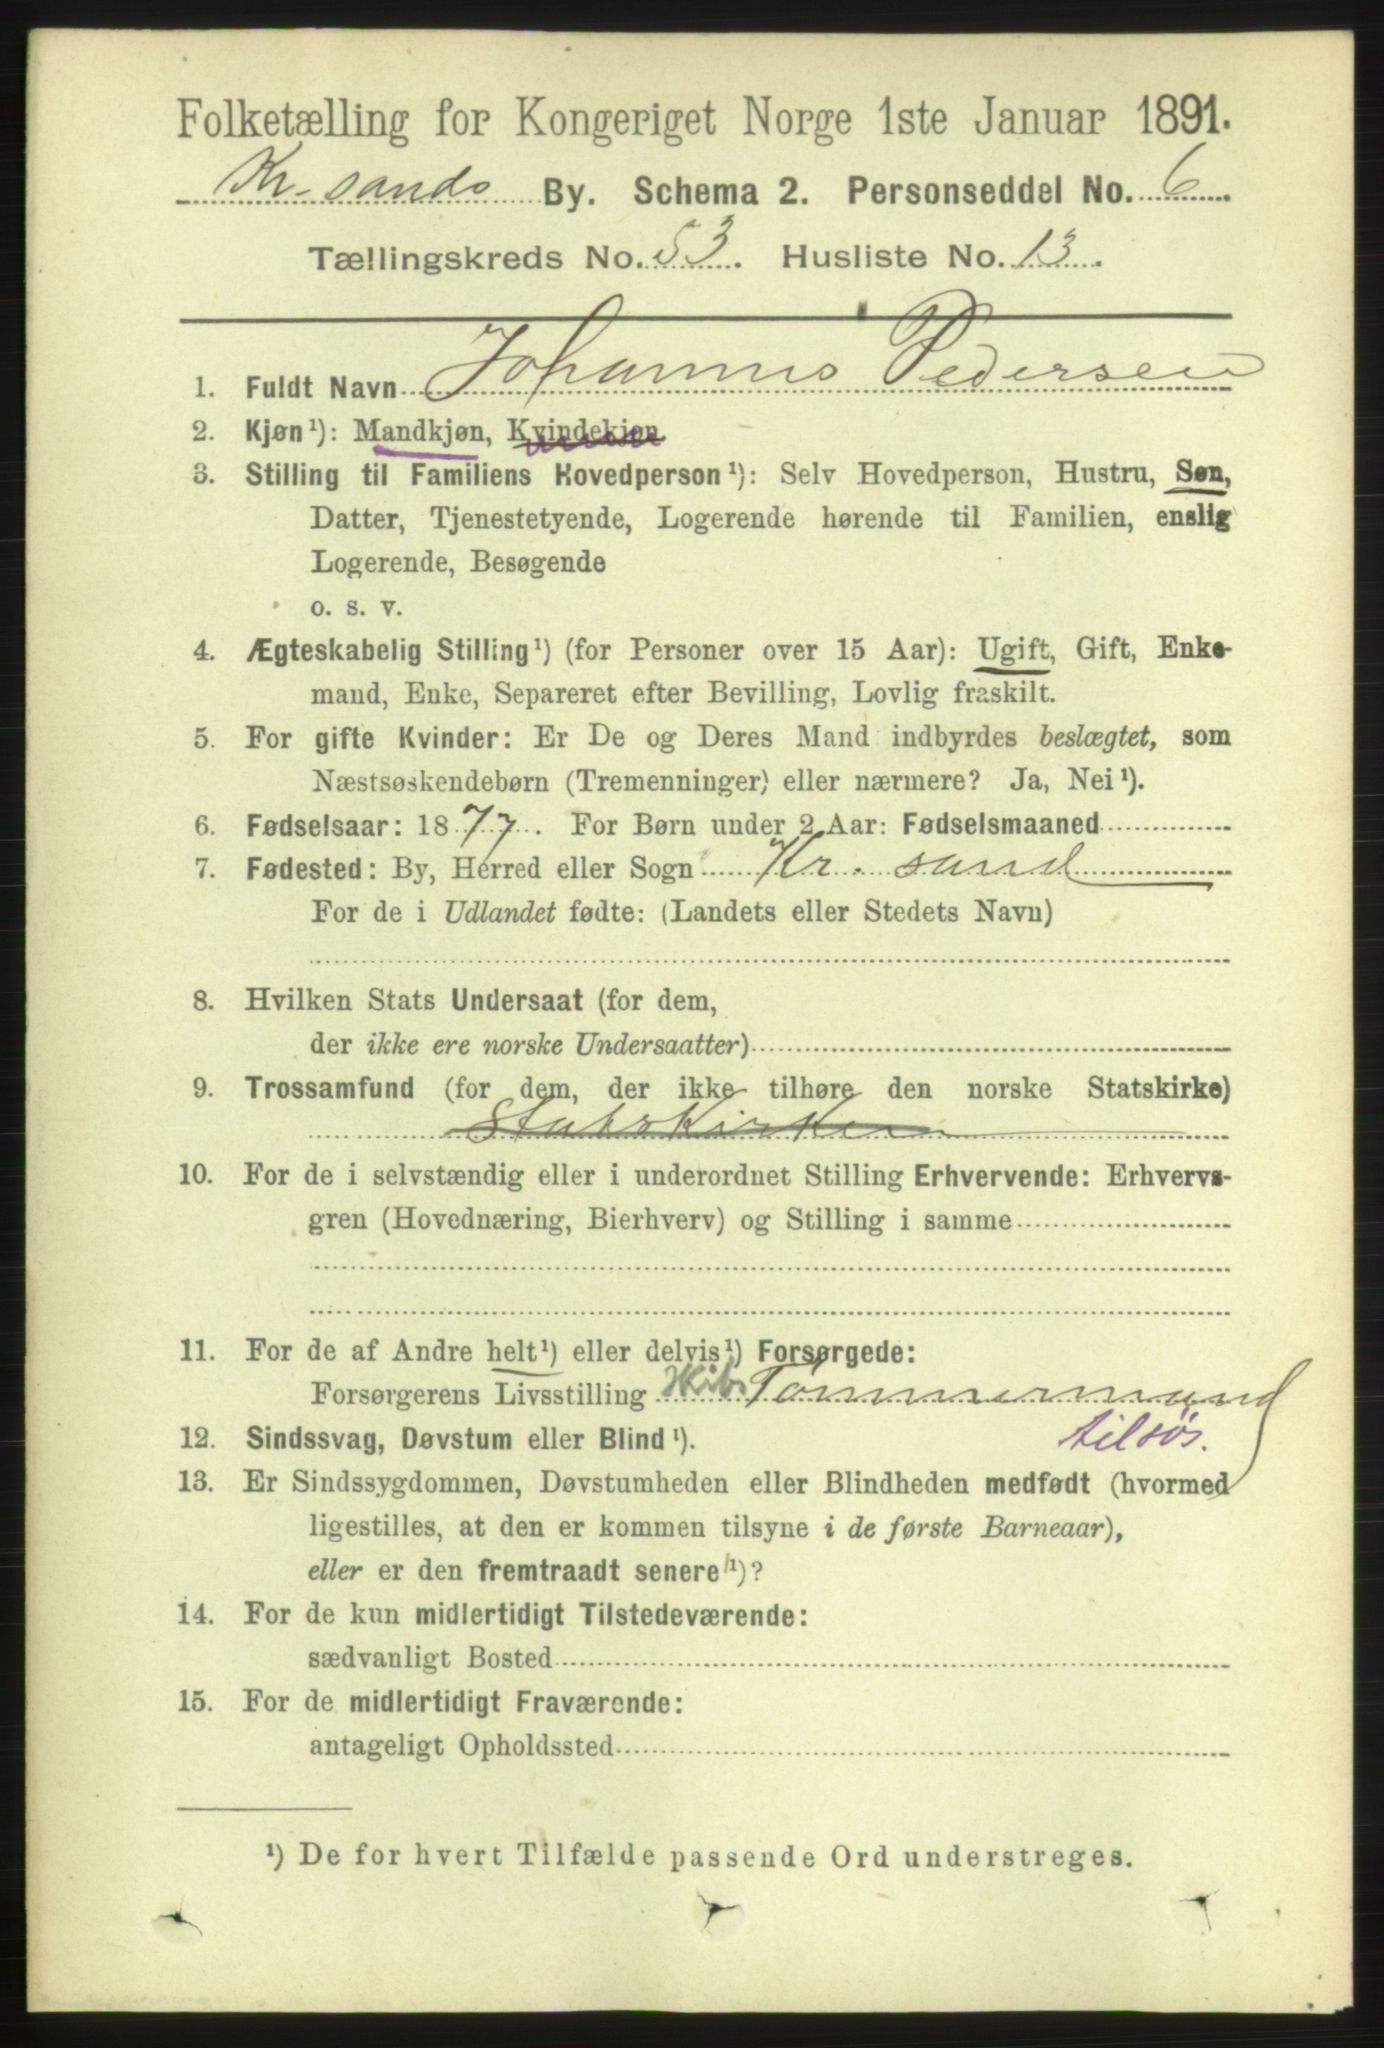 Folketælling for Kongeriget Norge 1ste Januar 1891.
Kr.sands By. Schema 2. Personseddel No. 6
Tællingskreds No. 53. Husliste No. 13.
1. Fuldt Navn Johannes Pedersen
2. Kjøn¹): Mandkjøn, Kvindekjøn
3. Stilling til Familiens Hovedperson¹): Selv Hovedperson, Hustru, Søn,
Datter, Tjenestetyende, Logerende hørende til Familien, enslig
Logerende, Besøgende
o. s. v.
4. Ægteskabelig Stilling¹) (for Personer over 15 Aar): Ugift, Gift, Enke-
mand, Enke, Separeret efter Bevilling, Lovlig fraskilt.
5. For gifte Kvinder: Er De og Deres Mand indbyrdes beslægtet, som
Næstsøskendebørn (Tremenninger) eller nærmere? Ja, Nei¹).
6. Fødselsaar: 1877. For Børn under 2 Aar: Fødselsmaaned
7. Fødested: By, Herred eller Sogn Kr.sand
For de i Udlandet fødte: (Landets eller Stedets Navn)
8. Hvilken Stats Undersaat (for dem,
der ikke ere norske Undersaatter)
9. Trossamfund (for dem, der ikke tilhøre den norske Statskirke)
Statskirken
10. For de i selvstændig eller i underordnet Stilling Erhvervende: Erhvervs-
gren (Hovednæring, Bierhverv) og Stilling i samme
11. For de af Andre helt¹) eller delvis¹) Forsørgede:
Forsørgerens Livsstilling Skibs Tømmermand
tilsøs.
12. Sindssvag, Døvstum eller Blind¹).
13. Er Sindssygdommen, Døvstumheden eller Blindheden medfødt (hvormed
ligestilles, at den er kommen tilsyne i de første Barneaar),
eller er den fremtraadt senere¹)?
14. For de kun midlertidigt Tilstedeværende:
sædvanligt Bosted
15. For de midlertidigt Fraværende:
antageligt Opholdssted
¹) De for hvert Tilfælde passende Ord understreges.